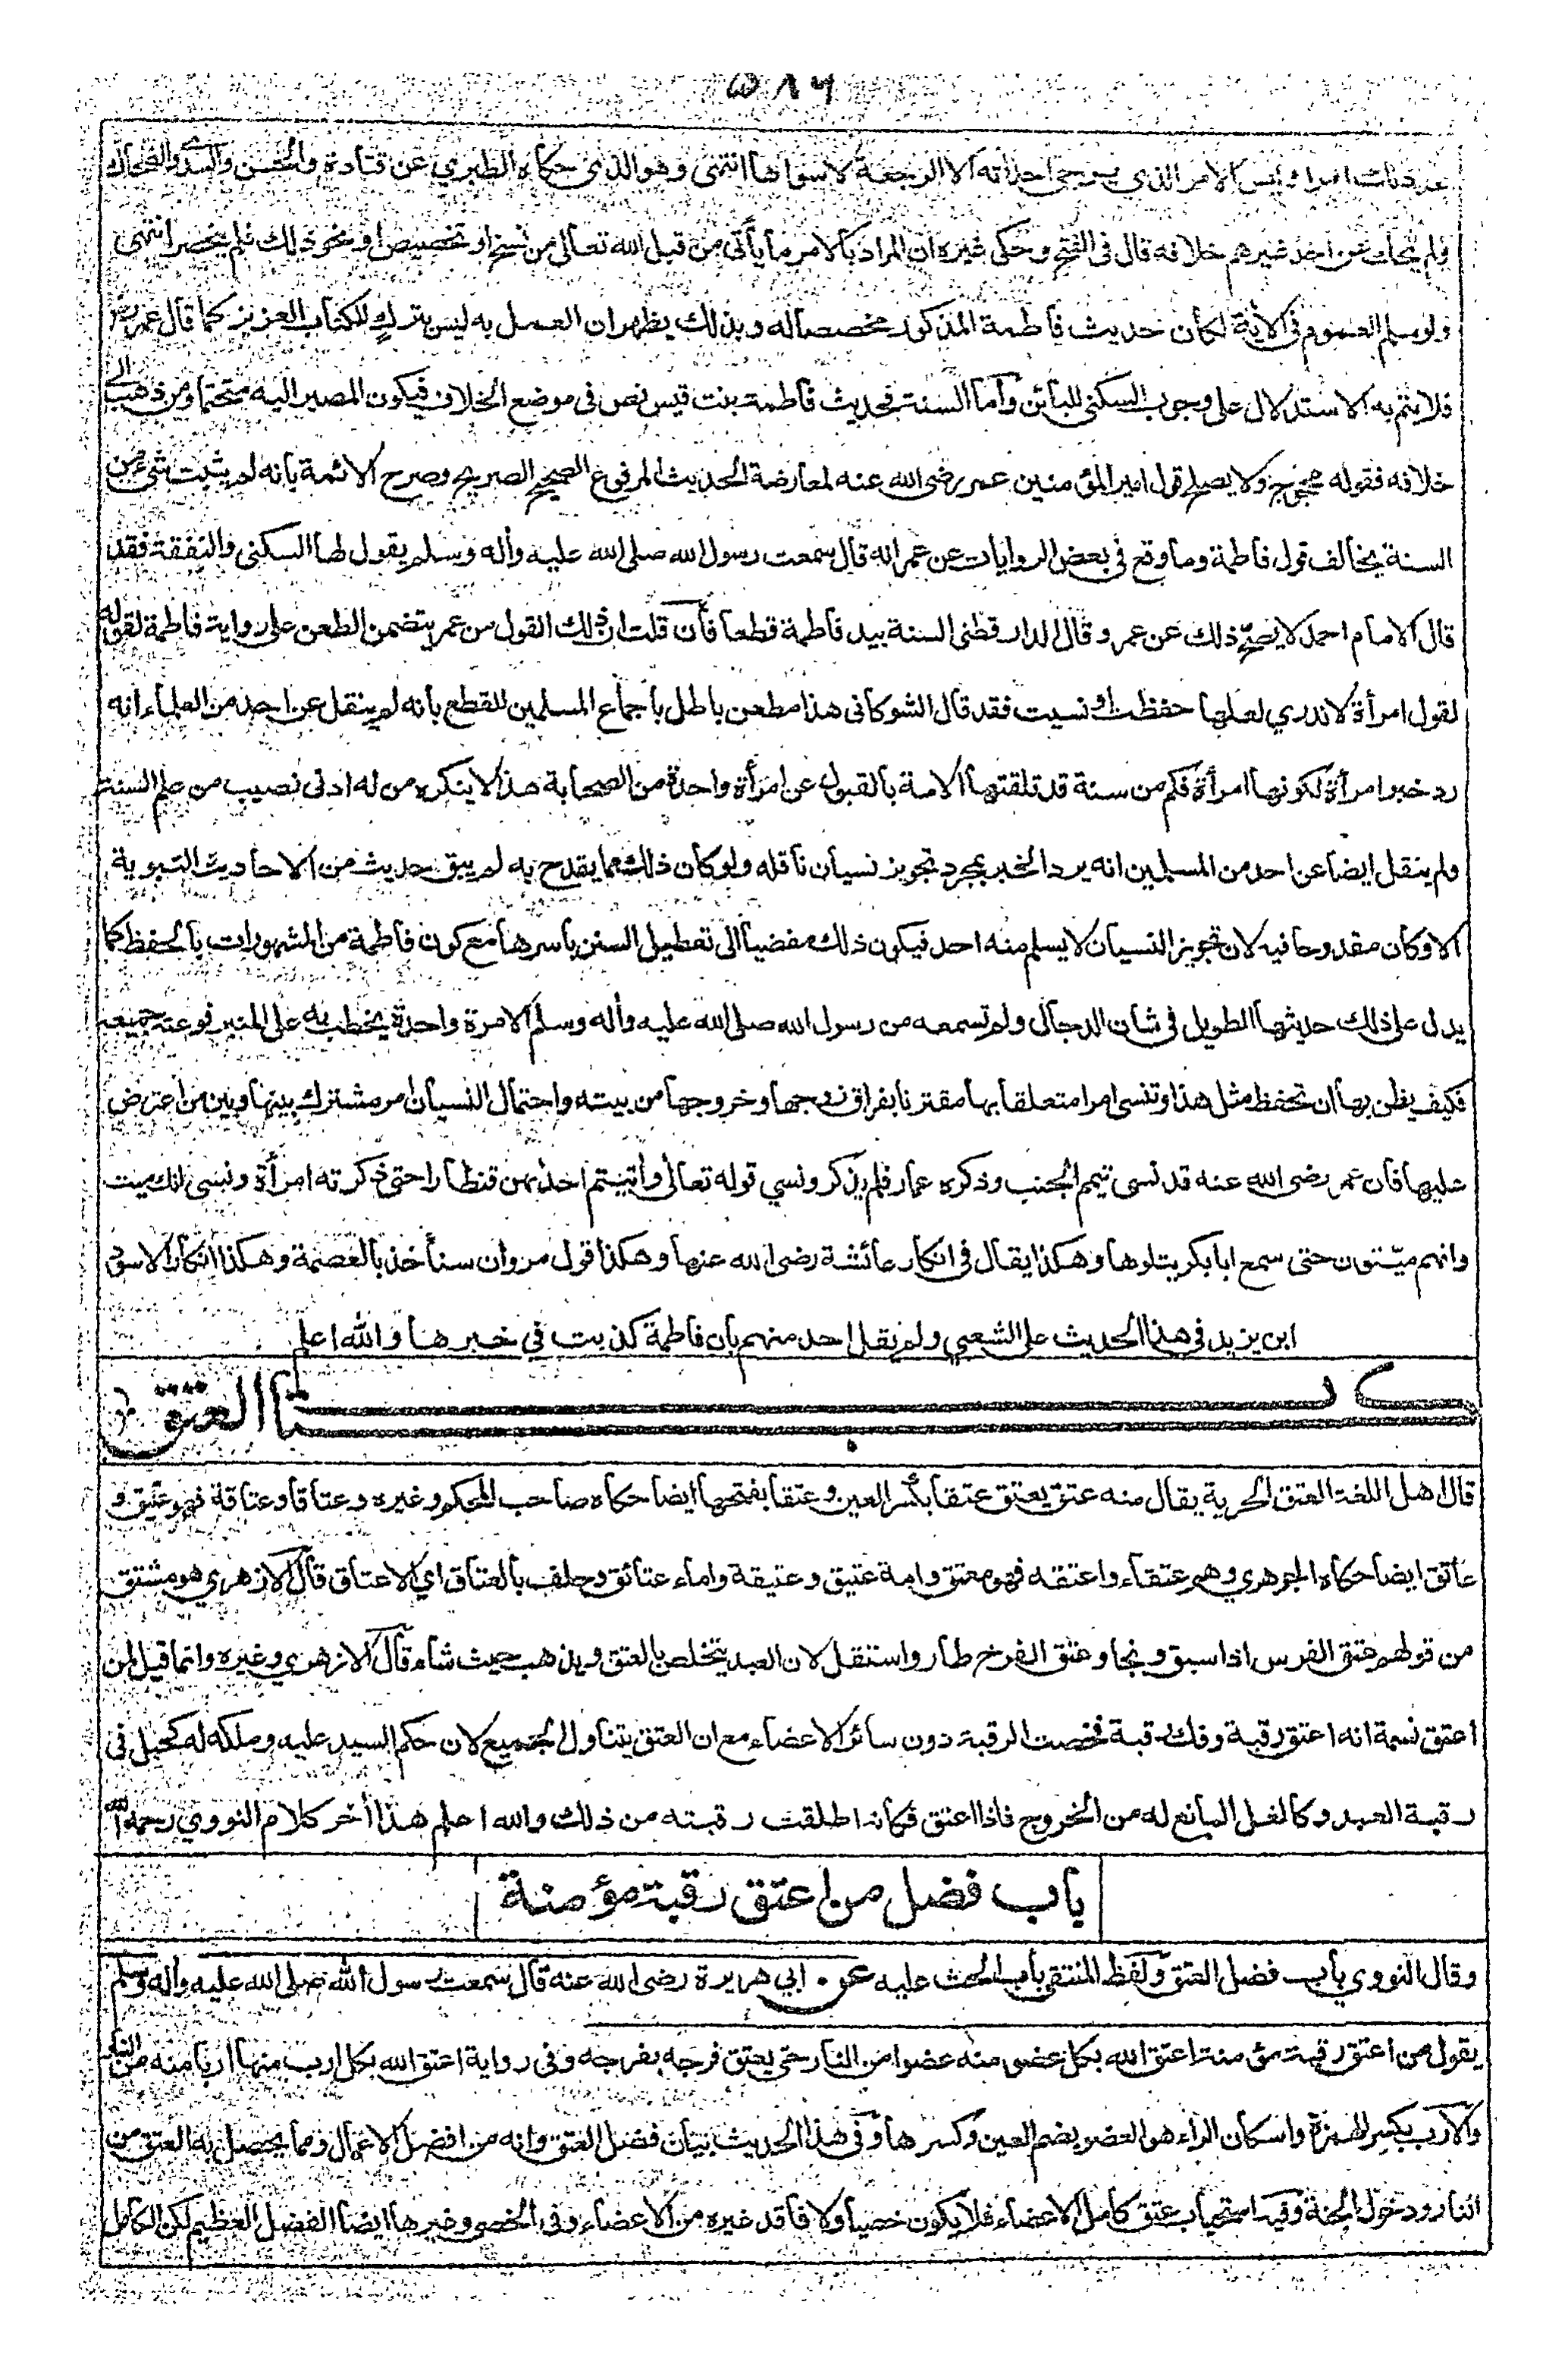 ٥٨٦
الامر الذي يرجى احداثه الا الرجعة لا سواها انتهى وهو الذي حكاه الطبري عن قتادة والحسن والسدي والضحاك
ولم يحك عن احد غيرهم خلافه قال في الفتح وحكى غيره ان المراد بالامر ما يأتي من قبل الله تعالى من نسخ او تخصيص او نحو ذلك فلم ينحصر انتهى
ولو سلم العموم في الآية لكان حديث فاطمة المذكور مخصصا له وبذلك يظهر ان العمل به ليس بترك للكتاب العزيز كما قال عمر
فلا يتم به الاستدلال على وجوب السكنى للبائن وأما السنة فحديث فاطمة بنت قيس نص في موضع الخلاف فيكون المصير اليه متحتما ومن ذهب الى
خلافه فقوله محجوج ولا يصلح قول امير المؤمنين عمر رضى الله عنه لمعارضة الحديث المرفوع الصحيح الصريح وصرح الائمة بانه لم يثبت شيء من
السنة يخالف قول فاطمة وما وقع في بعض الروايات عن عمر انه قال سمعت رسول الله صلى الله عليه وأله وسلم يقول لها السكنى والنفقة فقد
قال الامام احمد لا يصح ذلك عن عمر وقال الدارقطنى السنة بيد فاطمة قطعا فأن قلت ان ذلك القول من عمر يتضمن الطعن على رواية فاطمة لقوله
لقول امرأة لا ندري لعلها حفظت او نسيت فقد قال الشوكانى هذا مطعن باطل بأجماع المسلمين للقطع بانه لم ينقل عن احد من العلماء انه
رد خبر امرأة لكونها امرأة فكم من سنة قد تلقتها الامة بالقبول عن امرأة واحدة من الصحابة هذا لا ينكره من له ادنى نصيب من علم السنة
ولم ينقل ايضا عن احد من المسلمين انه يرد الخبر بمجرد تجويز نسيان ناقله ولو كان ذلك مما يقدح به لم يبق حديث من الاحاديث النبوية
الا وكان مقدوحا فيه لان تجويز النسيان لا يسلم منه احد فيكون ذلك مفضيا الى تعطيل السنن باسرها مع كون فاطمة من المشهورات بالحفظ كما
يدل على ذلك حديثها الطويل في شان الدجال ولم تسمعه من رسول الله صلى الله عليه وأله وسلم الا مرة واحدة يخطب به على المنبر فوعته جميعه
فكيف يظن بها ان تحفظ مثل هذا وتنسى امرا متعلقا بها مقترنا بفراق زوجها وخروجها من بيته واحتمال النسيان امر مشترك بينها وبين من اعترض
عليها فأن عمر رضى الله عنه قد نسى تيمم الجنب وذكره عمار فلم يذكر ونسي قوله تعالى وأتيتم احدٰهن قنطارا حتى ذكرته امرأة ونسى انك ميت
وانهم ميّتون حتى سمع ابا بكر يتلوها وهكذا يقال في انكار عائشة رضى الله عنها وهكذا قول مروان سنأخذ بالعصمة وهكذا انكار الاسود
ابن يزيد في هذا الحديث على الشعبي ولم يقل احد منهم بان فاطمة كذبت في خبرها والله اعلم
كتاب العتق
قال اهل اللغة العتق الحرية يقال منه عتق يعتق عتقا بكسر العين وعتقا بفتحها ايضا حكاه صاحب المحكم وغيره وعتاقا وعتاقة فهو عتيق و
عاتق ايضا حكاه الجوهري وهم عتقاء واعتقه فهو معتق وامة عتيق وعتيقة واماء عتائق وحلف بالعتاق اي الاعتاق قال الازهري هو مشتق
من قولهم عتق الفرس اذا سبق ونجا وعتق الفرخ طار واستقل لان العبد يتخلص بالعتق ويذهب حيث شاء قال الازهري وغيره وانما قيل لمن
اعتق نسمة انه اعتق رقبة وفك رقبة فخصت الرقبة دون سائر الاعضاء مع ان العتق يتناول الجميع لان حكم السيد عليه وملكه له كحبل في
رقبة العبد وكالغل المانع له من الخروج فاذا اعتق فكانه اطلقت رقبته من ذلك والله اعلم هذا أخر كلام النووي رحمه الله
باب فضل من اعتق رقبة مؤمنة
وقال النووي باب فضل العتق ولفظ المنتقى باب الحث عليه عن ابي هريرة رضى الله عنه قال سمعت رسول الله صلى الله عليه وأله وسلم
يقول من اعتق رقبة مؤمنة اعتق الله بكل عضو منه عضوا من النار حتى يعتق فرجه بفرجه وفي رواية اعتق الله بكل ارب منها اربا منه من النار
والأرب بكسر الهمزة واسكان الراء هو العضو بضم العين وكسرها وفي هذا الحديث بيان فضل العتق وانه من افضل الاعمال ومما يحصل به العتق من
النار ودخول الجنة وفيه استحباب عتق كامل الاعضاء فلا يكون خصيا ولا فاقد غيره من الاعضاء وفي الخصي وغيرها ايضا الفضل العظيم لكن الكامل